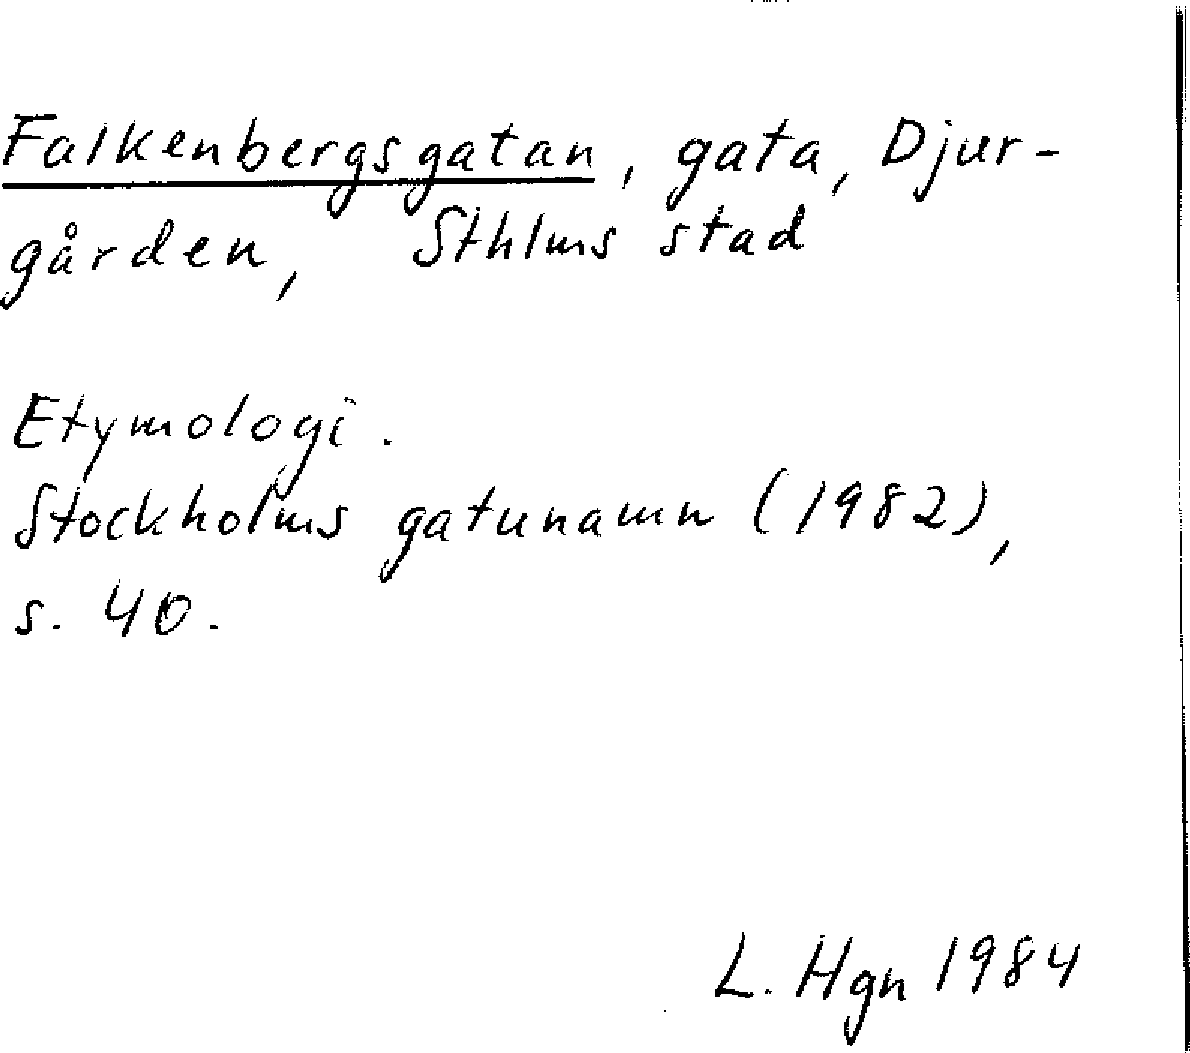 Falkenbergsgatan, gata, Djur-
gården, Sthlms stad
Etymologi.
Stockholms gatunamn (1982),
s. 40.
L. Hgn 1984